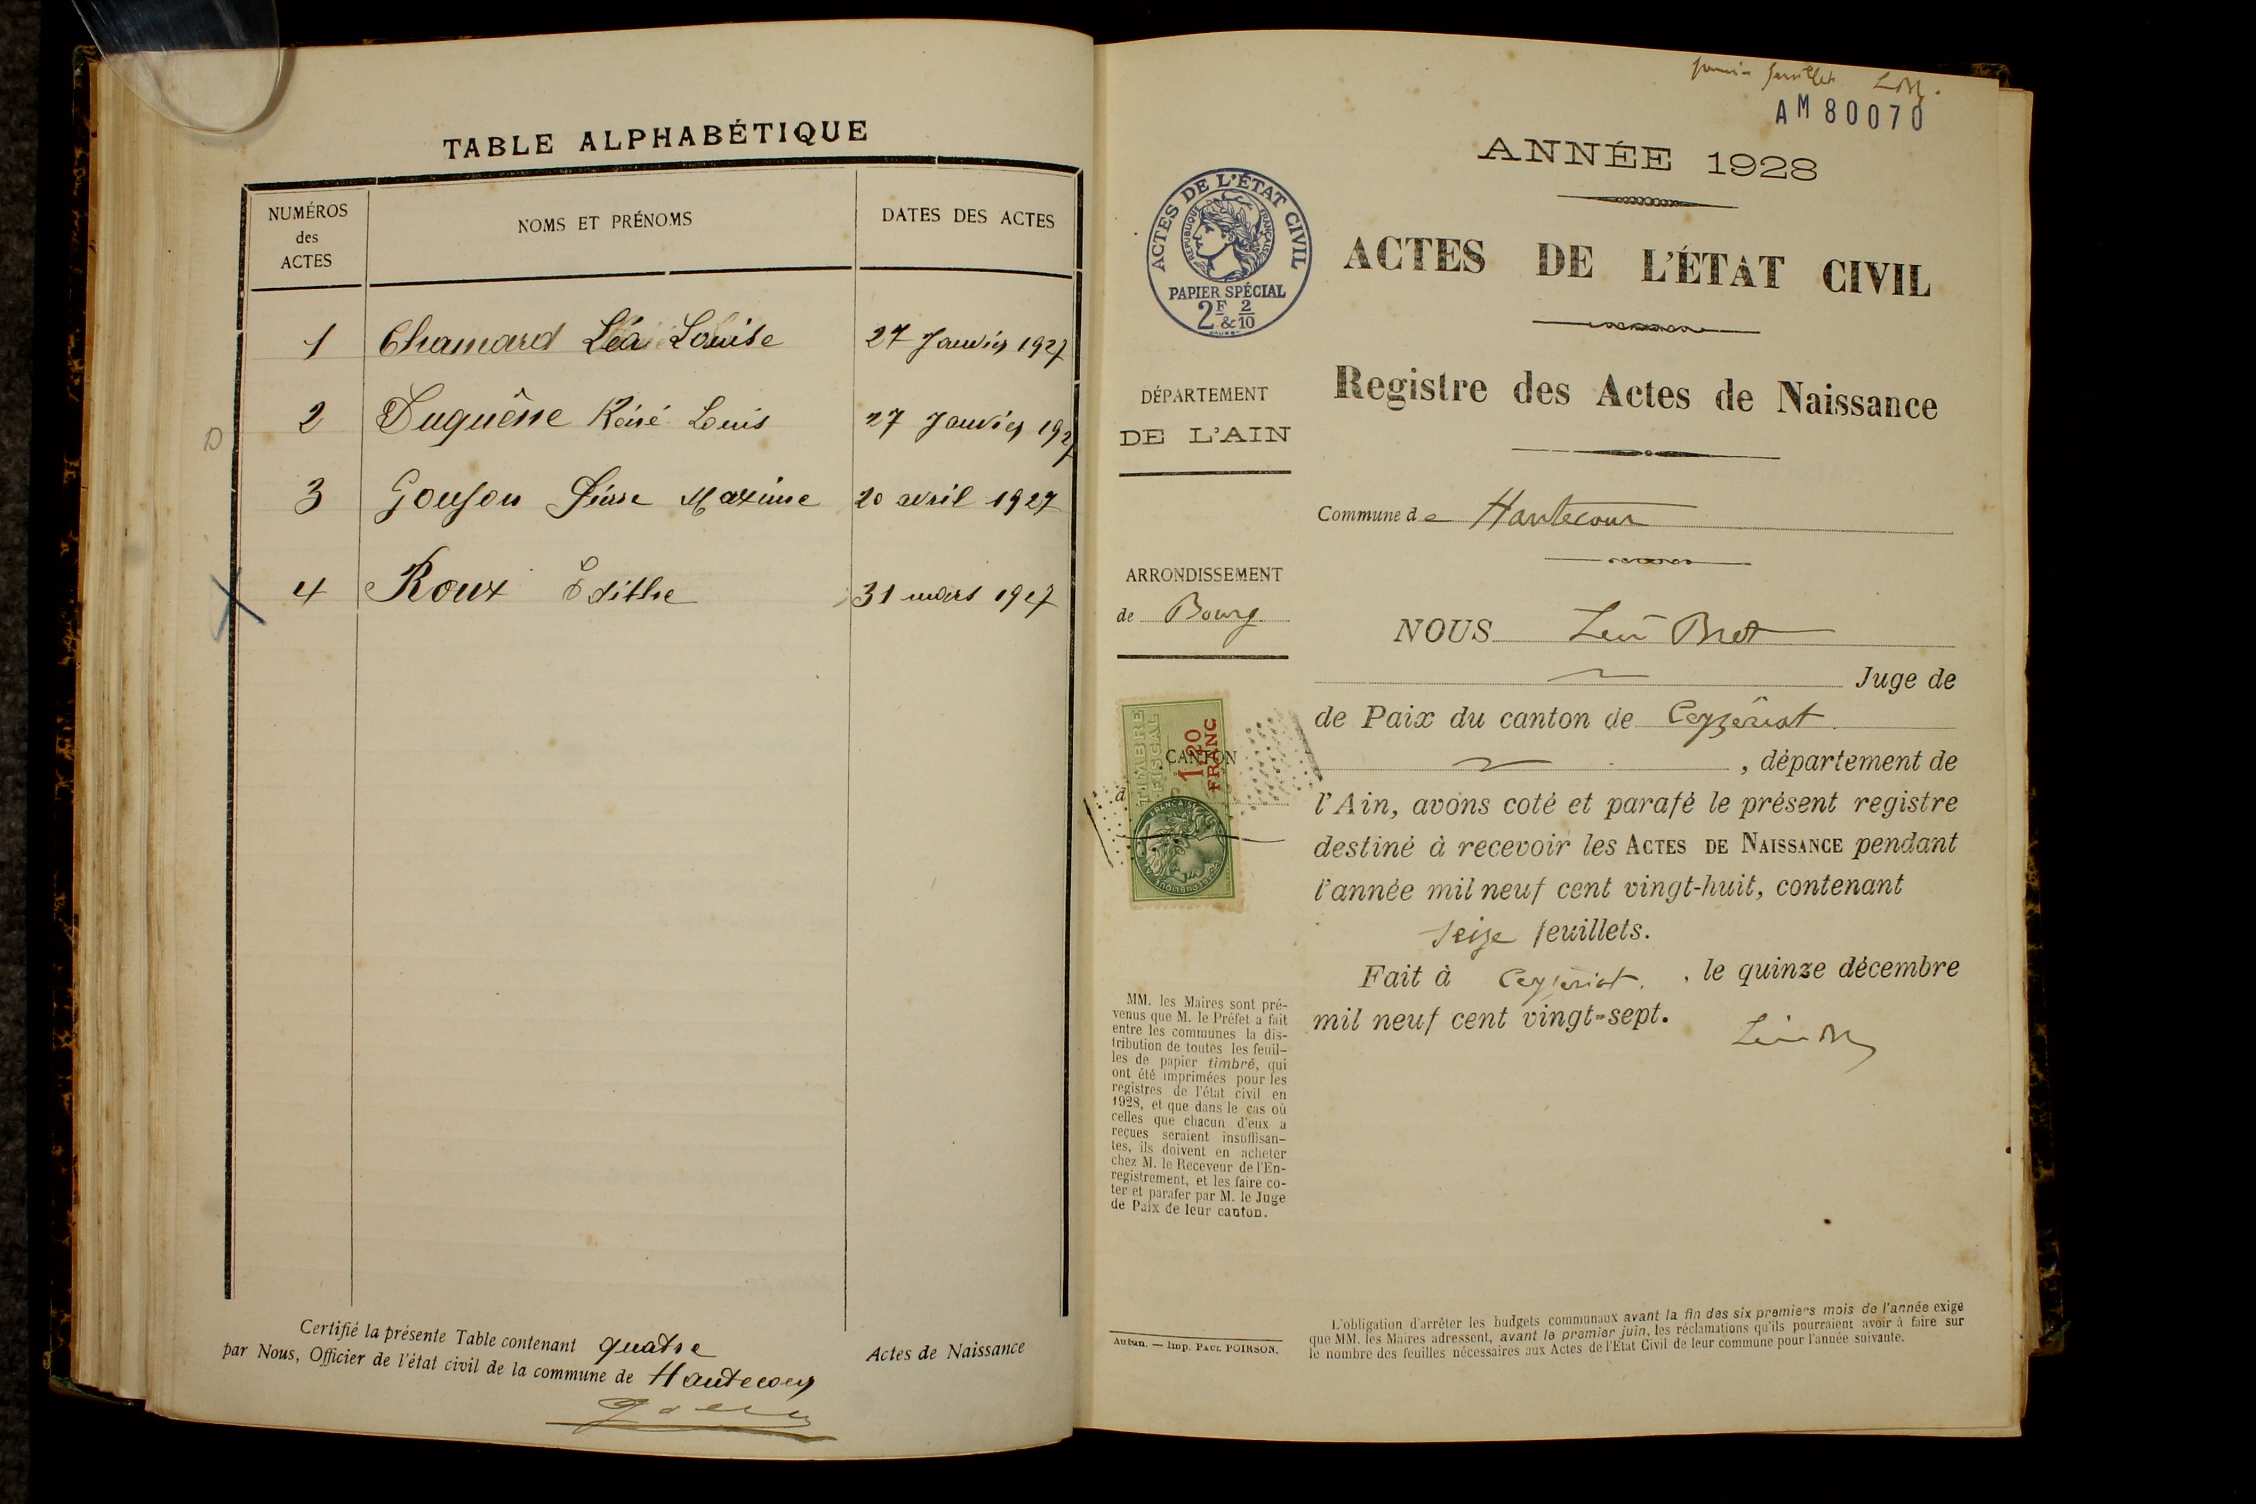 TABLE ALPHABÉTIQUE
NUMÉROS
des
ACTES
NOMS ET PRÉNOMS
DATES DES ACTES
1 Chamard Léa Louise 27 Janvier 1927
2 Duquêne Réné Louis 27 Janvier 1927
3 Goujon Pierre Maxime 20 avril 1927
4 Roux Edithe 31 mars 1927
Certifié la présente Table contenant quatre Actes de Naissance
par Nous, Officier de l'état civil de la commune de Hautecour
premier feuillet
AM 80070
ANNÉE 1928
ACTES DE L'ÉTAT CIVIL
RÉPUBLIQUE FRANÇAISE
PAPIER SPÉCIAL
2F & 2/10
ACTES DE L'ÉTAT CIVIL
Registre des Actes de Naissance
DÉPARTEMENT
DE L'AIN
Commune de Hautecour
ARRONDISSEMENT
de Bourg
NOUS Léon Bret
Juge de
de Paix du canton de Ceyzériat
, département de
l'Ain, avons coté et parafé le présent registre
destiné à recevoir les ACTES DE NAISSANCE pendant
l'année mil neuf cent vingt-huit, contenant
seize feuillets.
Fait à Ceyzériat, le quinze décembre
mil neuf cent vingt-sept.
CANTON
d
TIMBRE
FISCAL
1.20
FRANC
MM. les Maires sont pré-
venus que M. le Préfet a fait
entre les communes la dis-
tribution de toutes les feuil-
les de papier timbré, qui
ont été imprimées pour les
registres de l'état civil en
1928, et que dans le cas où
celles que chacun d'eux a
reçues seraient insuffisan-
tes, ils doivent en acheter
chez M. le Receveur de l'En-
registrement, et les faire co-
ter et parafer par M. le Juge
de Paix de leur canton.
Autun. — Imp. PAUL POIRSON.
L'obligation d'arrêter les budgets communaux avant la fin des six premiers mois de l'année exige
que MM. les Maires adressent, avant le premier juin, les réclamations qu'ils pourraient avoir à faire sur
le nombre des feuilles nécessaires aux Actes de l'Etat Civil de leur commune pour l'année suivante.